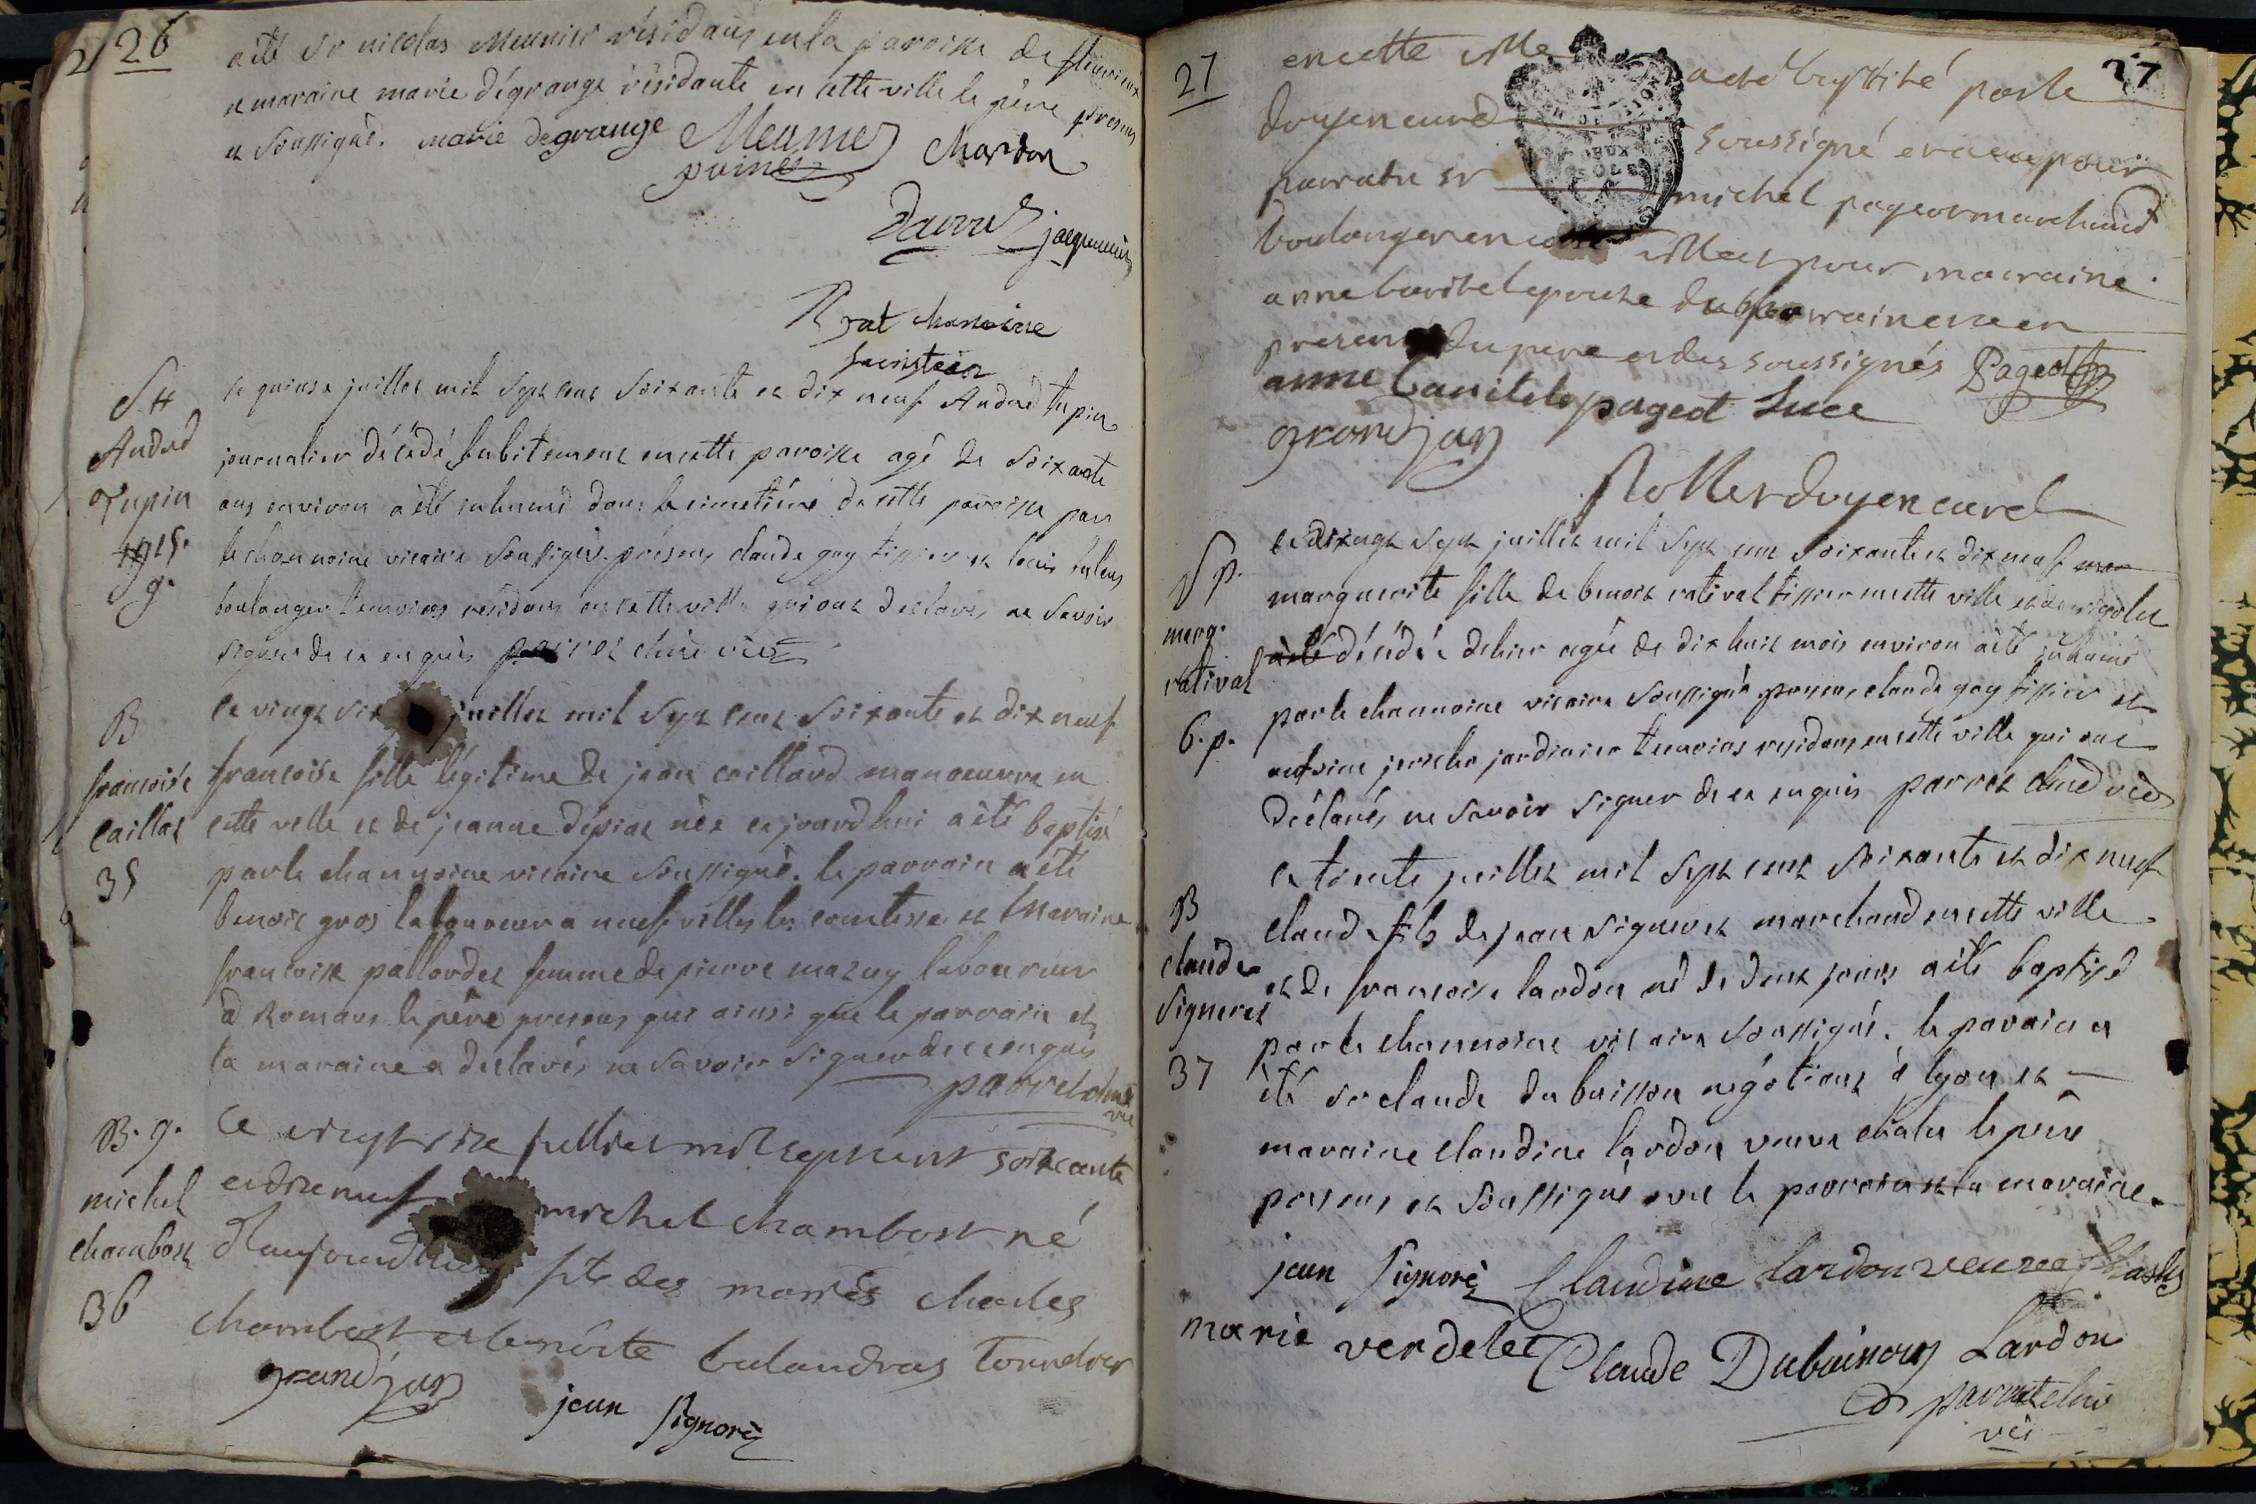 26
a été sr nicolas Meunier résidant en la paroisse de fleurieux
et maraine marie dégrange résidante en cette ville le père présent
et soussigné. marie degrange Meunier chardon
jacquemin
Rrat chanoine
sacristain
S H
André
Tupin
15.
g.
ce quinze juillet mil sept cent soixante et dix neuf André tupin
journalier décédé subitement en cette paroisse agé de soixante
ans environ a été inhumé dans le cimetière de cette paroisse par
le chanoine vicaire soussigné. présens claude guy tissier et louis
boulanger temoins résidans en cette ville qui ont déclarés ne savoir
signer de ce enquis parret chne vic
B
francoise
caillat
35
ce vingt six juillet mil sept cent soixante et dix neuf
francoise fille légitime de jean caillard manoeuvre en
cette ville et de jeanne dépiat née ce jourd'hui a été baptisé
par le chanoine vicaire soussigné. le parrain a été
benoit gros laboureur a neufvilles les comtesse et maraine
francoise pallordet femme de pierre mazuy laboureur
à Romans le père present qui ainsi que le parrain et
la maraine a declarés ne savoir signer de ce enquis
parret chne
vic
B. g.
michel
chambost
36
Ce vingt six juilliet mil sept cent soixcante
et dix neuf michel chambost né
d'aujourdhuy fils des mariés charles
chambost et benoite balandras
grandjan jean signoré
27
27
en cette ville a été baptisé par le
doyen curé soussigné et a eu pour
parrain sr michel pageot marchand
boulanger en cette ville et pour marraine
anne baritel epouse du parrain et en
presence du pere et des soussignés Pageot
anne baritel pageot Luce
grandjan
Rollet doyen curé
S p.
marg.
rativat
6. p.
ce vingt sept juillet mil sept cent soixante et dix neuf
marguerite fille de benoit rativat tissier en cette ville et de
décédée d'hier agée de dix huit mois environ a été inhumé
par le chanoine vicaire soussigné presens claude guy tissier et
antoine jardinier temoins residans en cette ville qui ont
déclarés ne savoir signer de ce enquis parret chne vic
B
claude
signeret
37
ce trente juillet mil sept cent soixante et dix neuf
claude fils de jean signeret marchand en cette ville
et de francoise lardon né de deux jours a été baptisé
par le chanoine vicaire soussigné. le parrain a
été sr claude dubuisson négotiant à lyon et
maraine claudine lardon veuve chales le père
present et soussigné avec le parrain et la maraine.
jean signoré Claudine Lardon veuve Chasles
marie verdelet Claude Dubuisson Lardon
parret chne
vic